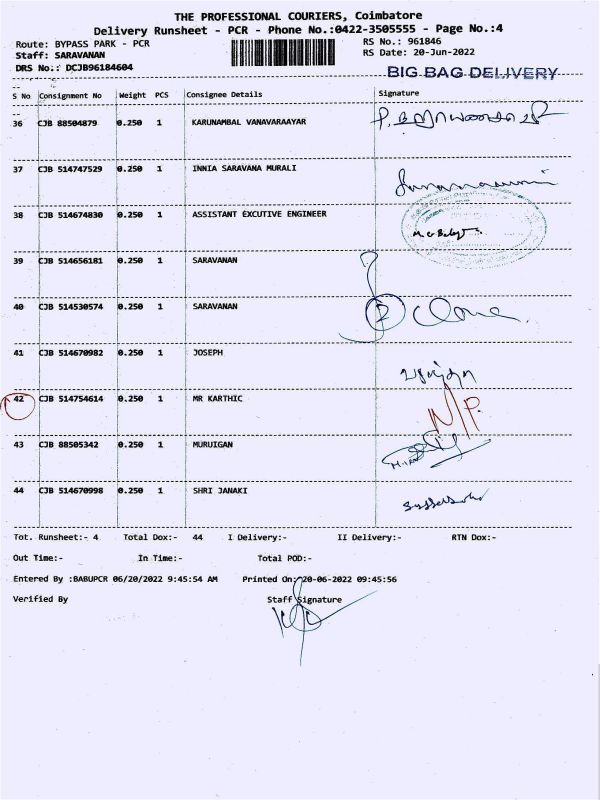 THE PROFESSIONAL COURIERS, Coimbatore
Delivery Runsheet - PCR - Phone No.:0422-3505555 - Page No.:4
Route: BYPASS PARK - PCR RS No.: 961846
Staff: SARAVANAN RS Date: 20-Jun-2022
DRS No.: DCJB96184604 BIG BAG DELIVERY
S No Consignment No Weight PCS Consignee Details Signature
36 CJB 88504879 0.250 1 KARUNAMBAL VANAVARAAYAR
37 CJB 514747529 0.250 1 INNIA SARAVANA MURALI
38 CJB 514674830 0.250 1 ASSISTANT EXCUTIVE ENGINEER
39 CJB 514656181 0.250 1 SARAVANAN
40 CJB 514530574 0.250 1 SARAVANAN
41 CJB 514670982 0.250 1 JOSEPH
42 CJB 514754614 0.250 1 MR KARTHIC N/P.
43 CJB 88505342 0.250 1 MURUIGAN
44 CJB 514670998 0.250 1 SHRI JANAKI
Tot. Runsheet:- 4 Total Dox:- 44 I Delivery:- II Delivery:- RTN Dox:-
Out Time:- In Time:- Total POD:-
Entered By :BABUPCR 06/20/2022 9:45:54 AM Printed On: 20-06-2022 09:45:56
Verified By Staff Signature